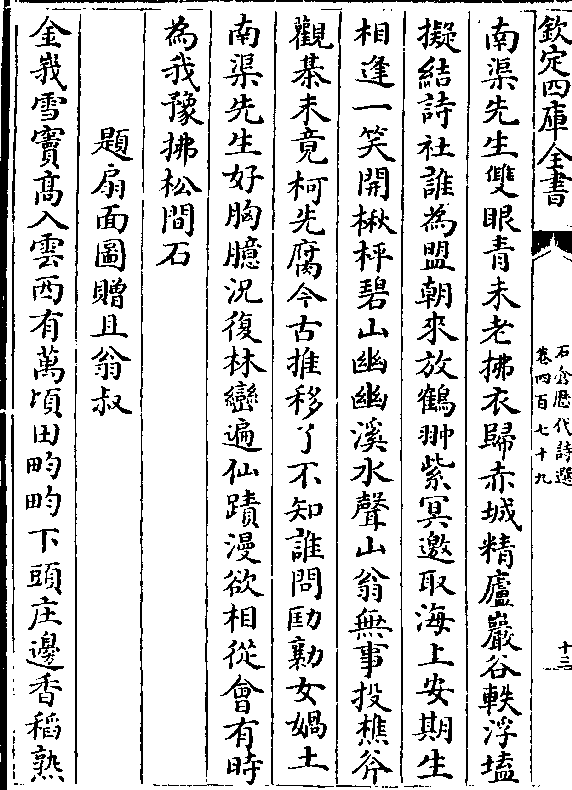 欽定四庫全書
石倉歷代詩選
卷四百七十九
十三
南渠先生雙眼青未老拂衣歸赤城精廬巖谷軼浮𡏖
擬結詩社誰為盟朝來放鶴翀紫冥邀取海上安期生
相逢一笑開楸枰碧山幽幽溪水聲山翁無事投樵斧
觀棊未竟柯先腐今古推移了不知誰問勛勷女媧土
南渠先生好胸臆況復林巒遍仙蹟漫欲相從會有時
為我豫拂松間石
題扇面圖贈且翁叔
金峩雪竇高入雲西有萬頃田畇畇下頭庄邊香稻熟